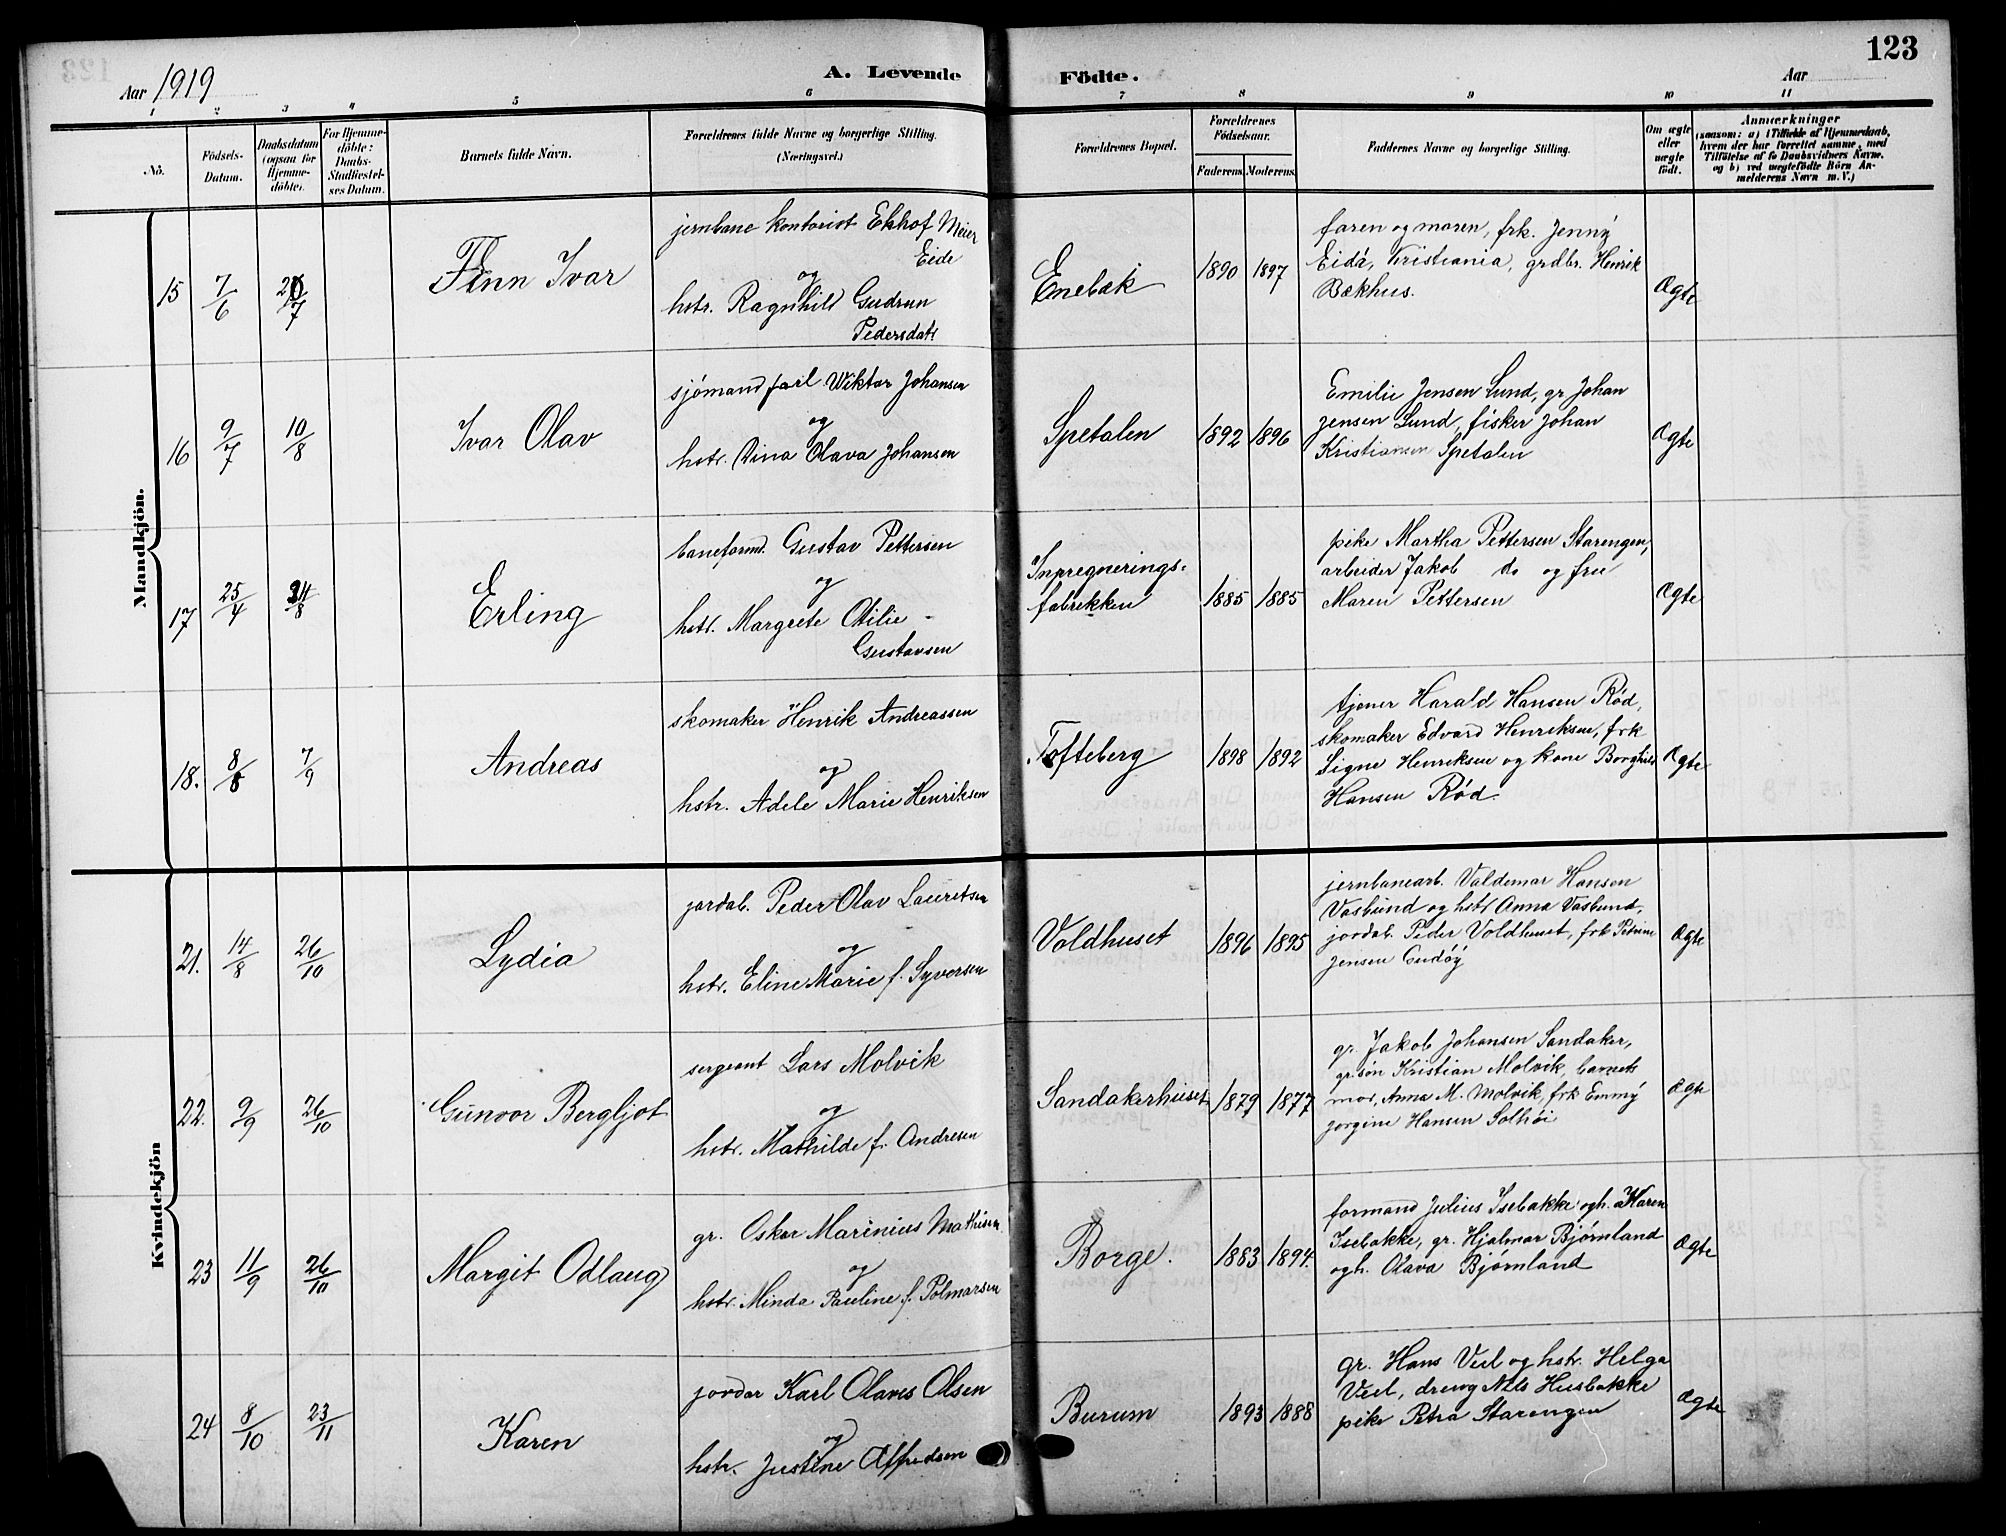 123
Aar 1919
A. Levende Födte.
Aar
1 2 3 4 5 6 7 8 9 10 11
No.
Födsels-Datum.
Daabsdatum (ogsaa for Hjemme-döbte).
For Hjemme-döbte: Daabs-Stadfæstel-ses Datum.
Barnets fulde Navn.
Forældrenes fulde Navne og borgerlige Stilling.
(Næringsvei.)
Forældrenes Bopæl.
Forældrenes Födselsaar.
Faderens Moderens
Faddernes Navne og borgerlige Stilling.
Om ægte eller uægte födt.
Anmærkninger
(saasom: a) i Tilfælde af Hjemmedaab,
hvem der har forrettet samme, med
Tilföielse af to Daabsvidners Navne.
og b) ved uægtefödte Börn An-
melderens Navn m. V.)
Mandkjön.
15 7/6 20/7 Finn Ivar
jernbane kontorist Ekhof Meier
Eide
og
hstr. Ragnhild Gudrun
Pedersdatr
Enebak 1890 1897
faren og moren, frk. Jenny
Eidá, Kristiania, grdbr. Henrik
Bækhus.
Ægte
16 9/7 10/8 Ivar Olav
sjömand Jarl Wiktor Johansen
og
hstr. Dina Olava Johansen
Spetalen 1892 1896
Emilie Jensen Lund, gr Johan
Jensen Lund, fisker Johan
Kristiansen Spetalen
Ægte
17 25/4 24/8 Erling
baneformd. Gustav Pettersen
og
hstr. Margrete Otilie
Gustavsen
Inpregnerings-
fabrikken 1885 1885
pike Martha Pettersen Starengen,
arbeider Jakob do og fru
Maren Pettersen
Ægte
18. 8/8 7/9 Andreas
skomaker Henrik Andreassen
og
hstr. Adele Marie Henriksen
Tofteberg 1898 1892
tjener Harald Hansen Rød,
skomaker Edvard Henriksen, frk
Signe Henriksen og kone Borghild
Hansen Rød.
Ægte
Kvindekjön
21. 14/8 26/10 Lydia
jordab. Peder Olav Lauretsen
og
hstr. Eline Marie f. Syversen
Voldhuset 1896 1895
jernbanearb. Valdemar Hansen
Vasbund og hstr Anna Vasbund,
jordab. Peder Voldhuset, frk Petrine
Jensen Gudøy
Ægte
22. 9/9 26/10 Gunvor Bergljot
sergeant Lars Molvik
og
hstr. Mathilde f. Andresen
Sandakerhuset 1879 1877
gr. Jakob Johansen Sandaker,
gr. søn Kristian Molvik, barnets
mor, Anna M. Molvik, frk Emmy
Jorgine Hansen Solhöi
Ægte
23 11/9 26/10 Margit Odlaug
gr. Oskar Marinius Mathisen
og
hstr. Minda Pauline f. Polmarsen
Borge. 1883 1894.
formand Julius Isebakke og h. Karen
Isebakke, gr. Hjalmar Bjørnland
og h. Olava Bjørnland
Ægte
24 8/10 23/11 Karen
jordar Karl Olaves Olsen
og
hstr. Justine Alfredsen
Burum 1893 1888
gr. Hans Veel og hstr. Helga
Veel, dreng Nils Husbakke
pike Petra Starengen
Ægte